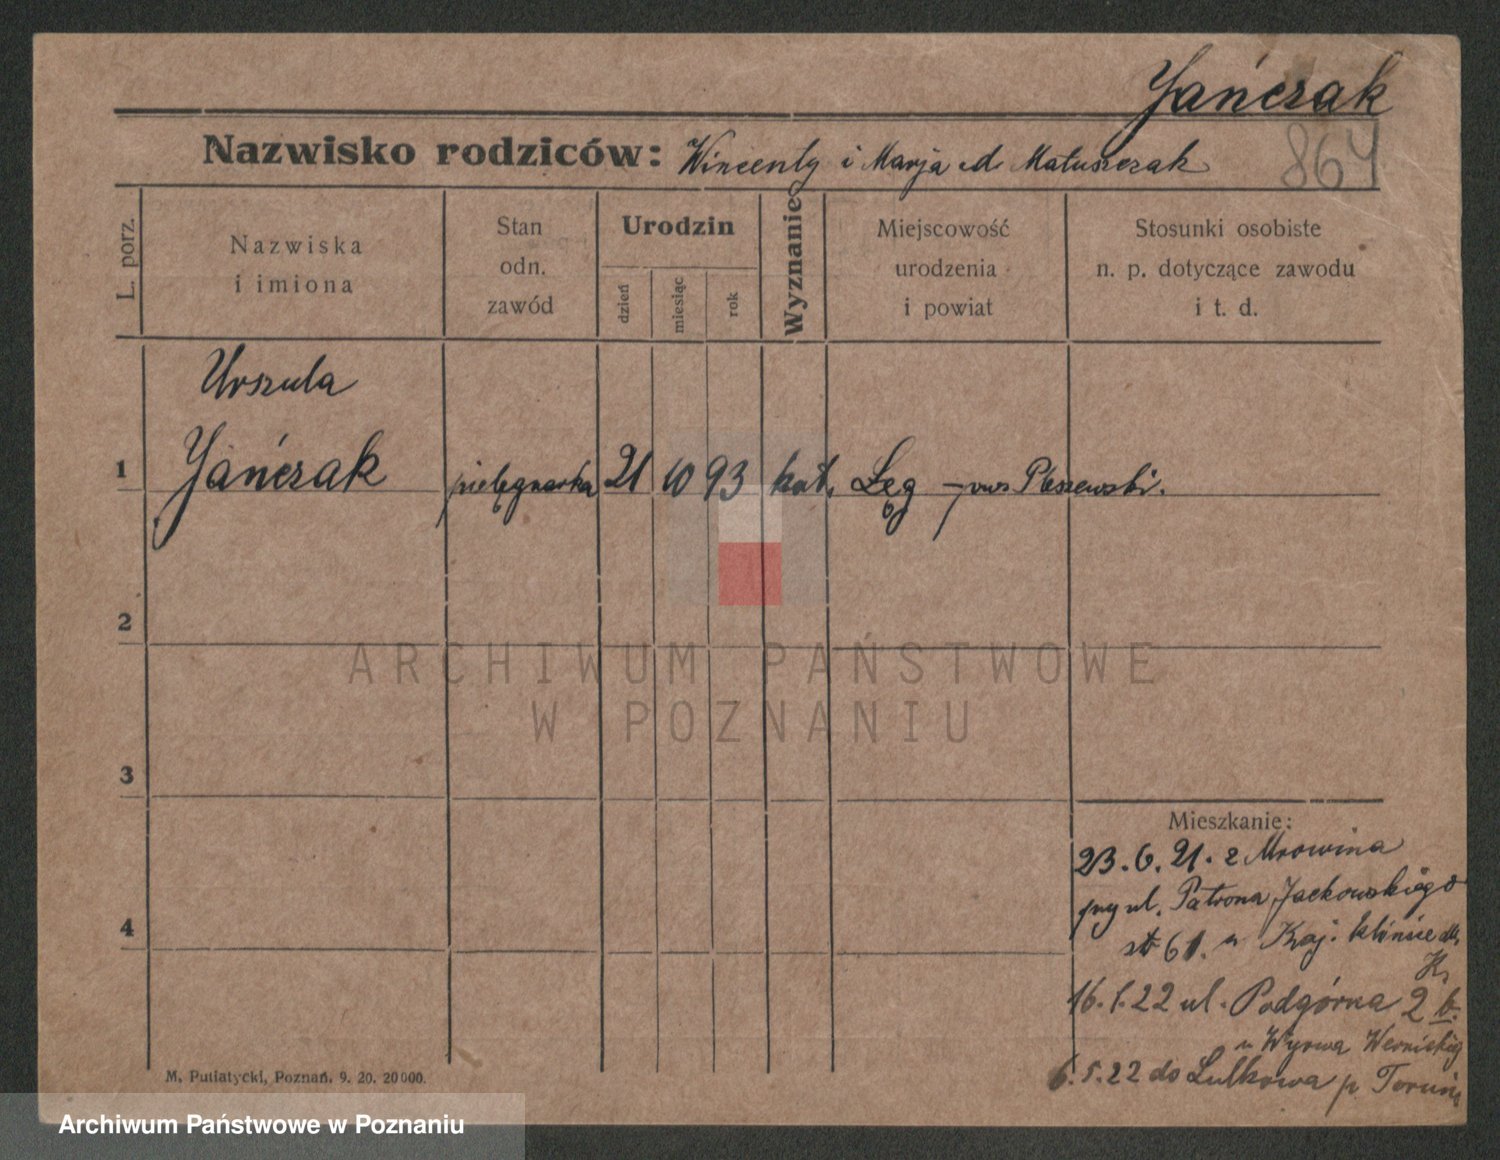 Jańczak
Nazwisko rodziców: Wincenty i Marja d Matuszczak
864
L. porz.
Nazwiska
i imiona
Stan
odn.
zawód
Urodzin
dzień
miesiąc
rok
Wyznanie
Miejscowość
urodzenia
i powiat
Stosunki osobiste
n. p. dotyczące zawodu
i t. d.
Urszula
1 Jańczak pielęgnarka 21 10 93 kat. Łęg pow Pleszewski.
2
ARCHIWUM PAŃSTWOWE
W POZNANIU
3
4
Mieszkanie:
23. 6. 21. z Mrowina
przy ul. Patrona Jackowskiego
61. u Kraj. klinice dla
K.
16. 1. 22 ul. Podgórna 2 b.
u
6. 5. 22 do Lulkowa p Toruń
M. Putiatycki, Poznań. 9. 20. 20000.
Archiwum Państwowe w Poznaniu